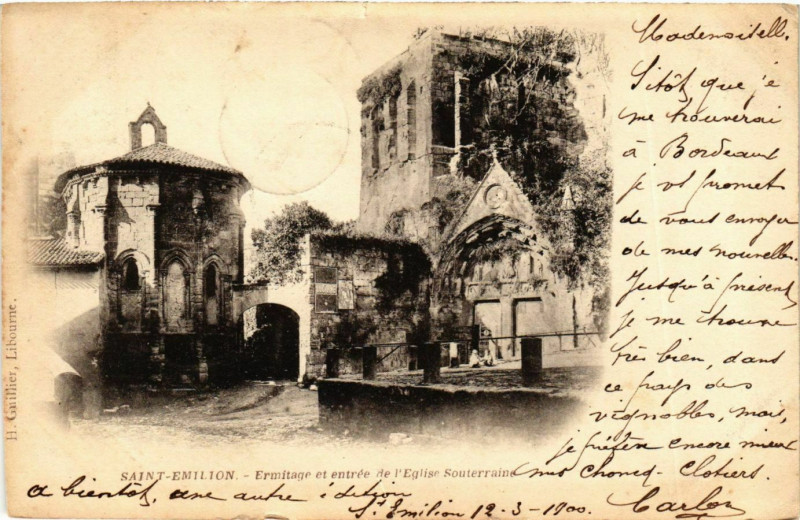 Mademoisell.
Sitôt que je
me trouverai
à Bordeaux
je vs promets
de vous envoyer
de mes nouvelle.
Jusqu'à présent
je me trouve
très bien, dans
ce pays des
vignobles, mais,
je préfère encore mieux
mes
H. Guillier, Libourne.
SAINT-EMILION. - Ermitage et entrée de l'Eglise Souterraine
a bientôt, une autre édition
St Emilion 12-3-1900.